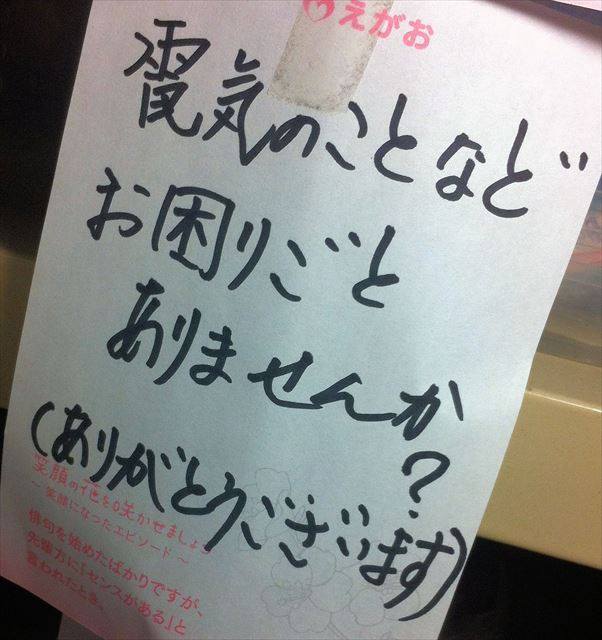 えがお
電気のことなど
お困りごと
ありませんか
?
(ありがとうございます)
笑顔の花を咲かせましょう
~ 笑顔になったエピソード ~
俳句を始めたばかりですが、
先輩方に「センスがある」と
言われたとき。